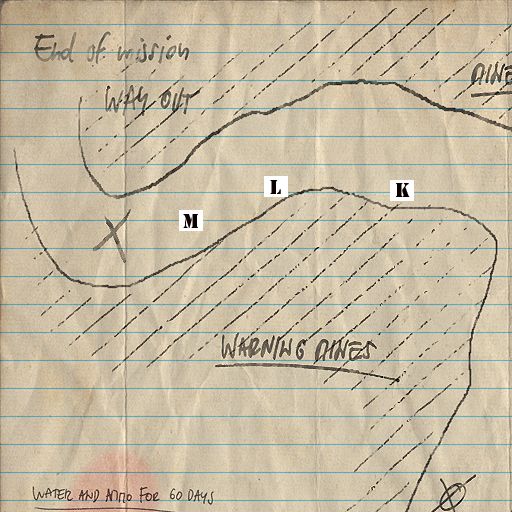 End of mission
WAY OUT
MINE
L
K
M
WARNING MINES
WATER AND AMMO FOR 60 DAYS